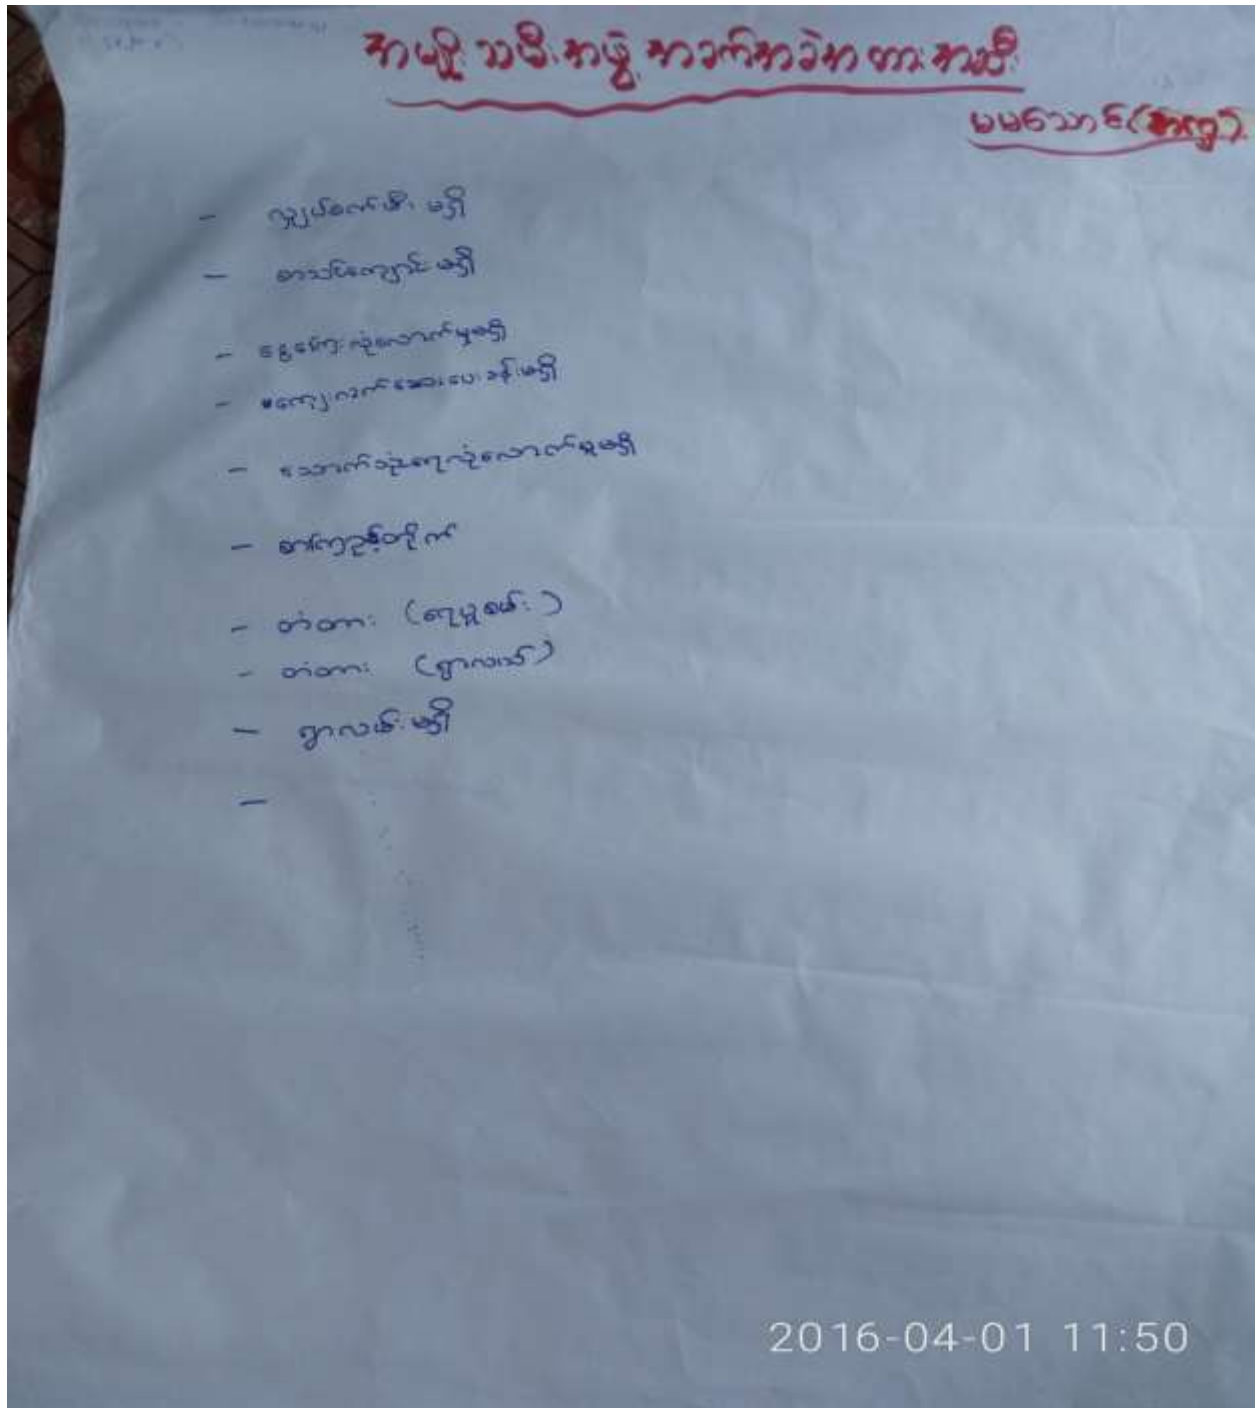 အမျိုးသမီးအဖွဲ့ အခက်အခဲအတားအဆီး
မမသောင် (အရှေ့)
- လျှပ်စစ်မီး မရှိ
- စာသင်ကျောင်း မရှိ
- ငွေကြေးလုံလောက်မှုမရှိ
- ကျေးလက်ဆေးပေးခန်းမရှိ
- သောက်သုံးရေလုံလောက်မှုမရှိ
- စာကြည့်တိုက်
- တံတား (ရေပူစမ်း)
- တံတား (ရွာလယ်)
- ရွာလမ်းမရှိ
-
2016-04-01 11:50